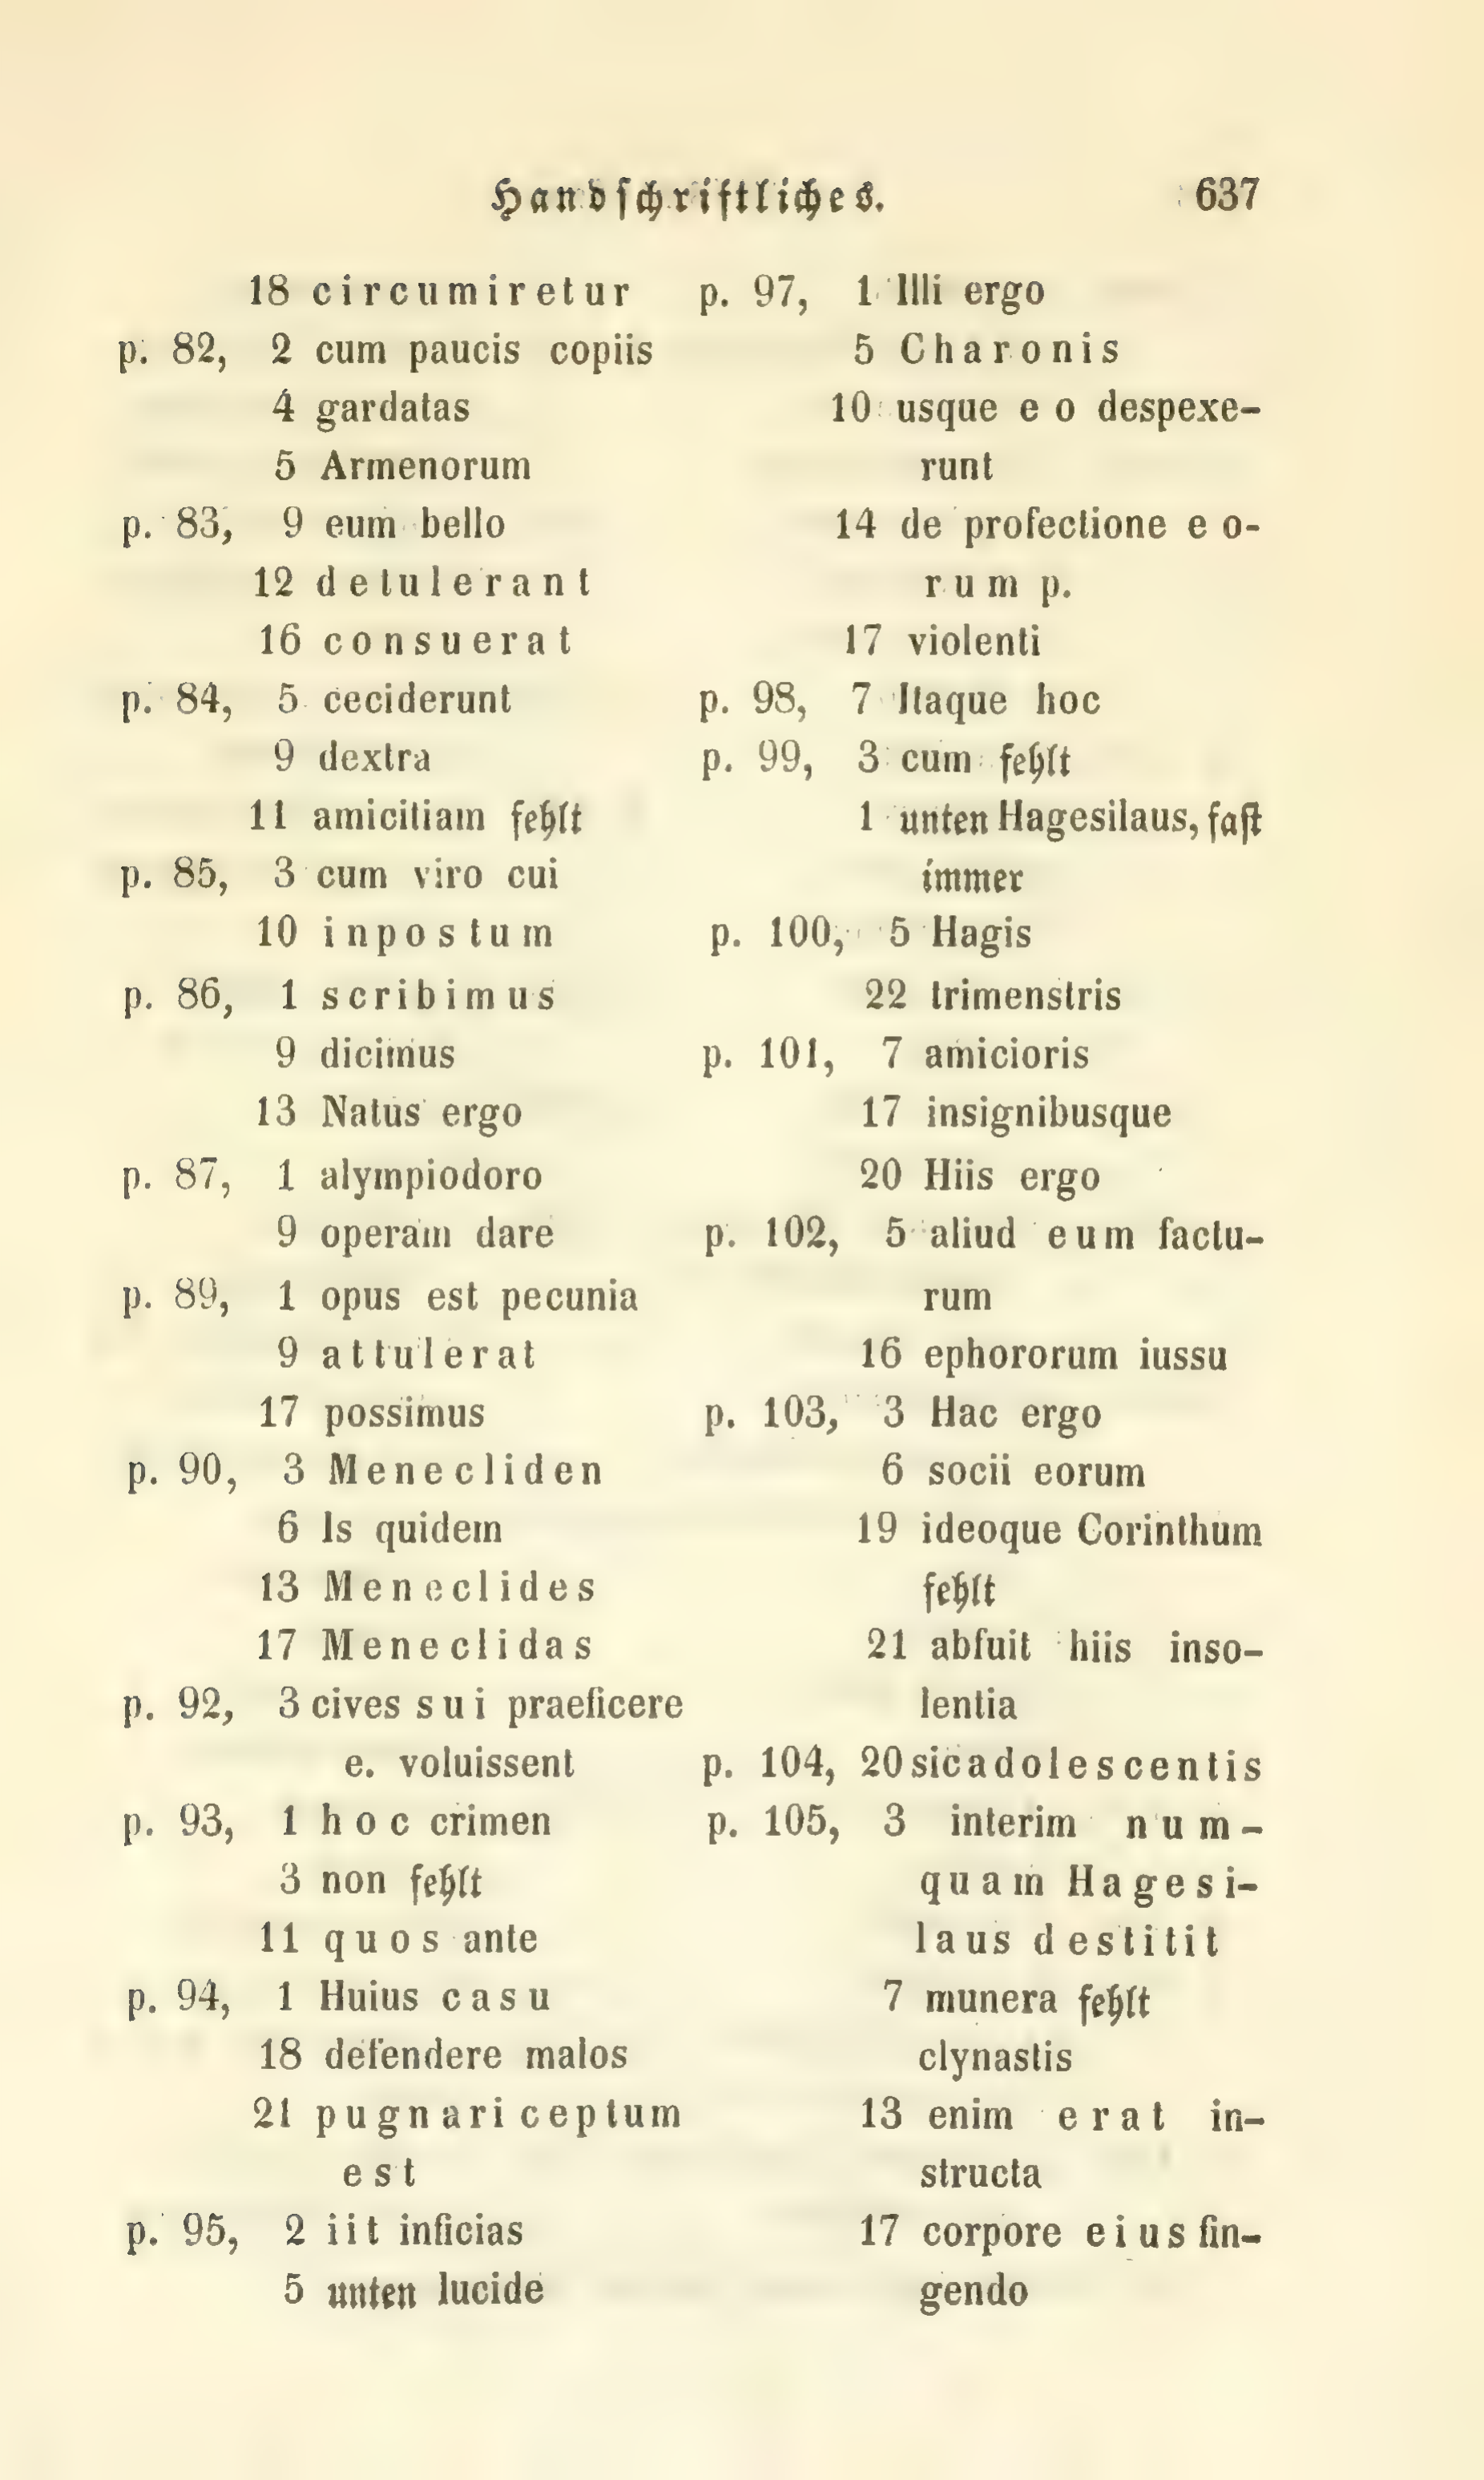 Handschriftliches. 637
18 circumiretur
p. 82, 2 cum paucis copiis
4 gardatas
5 Armenorum
p. 83, 9 eum bello
12 detulerant
16 consuerat
p. 84, 5 ceciderunt
9 dextra
11 amicitiam fehlt
p. 85, 3 cum viro cui
10 inpostum
p. 86, 1 scribimus
9 dicimus
13 Natus ergo
p. 87, 1 alympiodoro
9 operam dare
p. 89, 1 opus est pecunia
9 attulerat
17 possimus
p. 90, 3 Menecliden
6 Is quidem
13 Meneclides
17 Meneclidas
p. 92, 3 cives sui praeficere
e. voluissent
p. 93, 1 hoc crimen
3 non fehlt
11 quos ante
p. 94, 1 Huius casu
18 defendere malos
21 pugnari ceptum
est
p. 95, 2 iit inficias
5 unten lucide
p. 97, 1 Illi ergo
5 Charonis
10 usque eo despexe-
runt
14 de profectione eo-
rum p.
17 violenti
p. 98, 7 Itaque hoc
p. 99, 3 cum fehlt
1 unten Hagesilaus, fast
immer
p. 100, 5 Hagis
22 trimenstris
p. 101, 7 amicioris
17 insignibusque
20 Hiis ergo
p. 102, 5 aliud eum factu-
rum
16 ephororum iussu
p. 103, 3 Hac ergo
6 socii eorum
19 ideoque Corinthum
fehlt
21 abfuit hiis inso-
lentia
p. 104, 20 sic adolescentis
p. 105, 3 interim num-
quam Hagesi-
laus destitit
7 munera fehlt
clynastis
13 enim erat in-
structa
17 corpore eius fin-
gendo